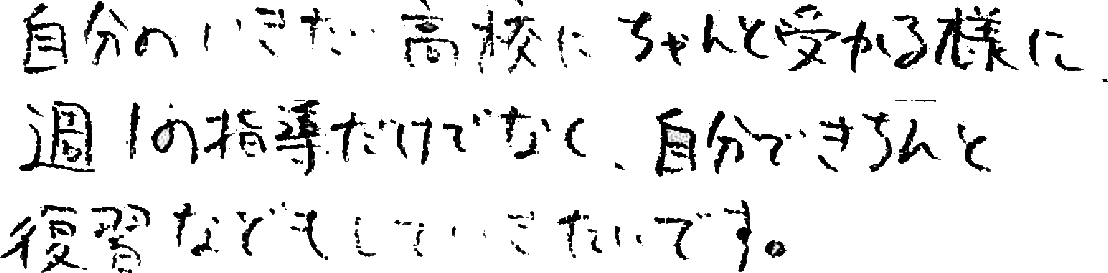 自分のいきたい高校にちゃんと受かる様に、
週1の指導だけでなく、自分できちんと
復習などもしていきたいです。